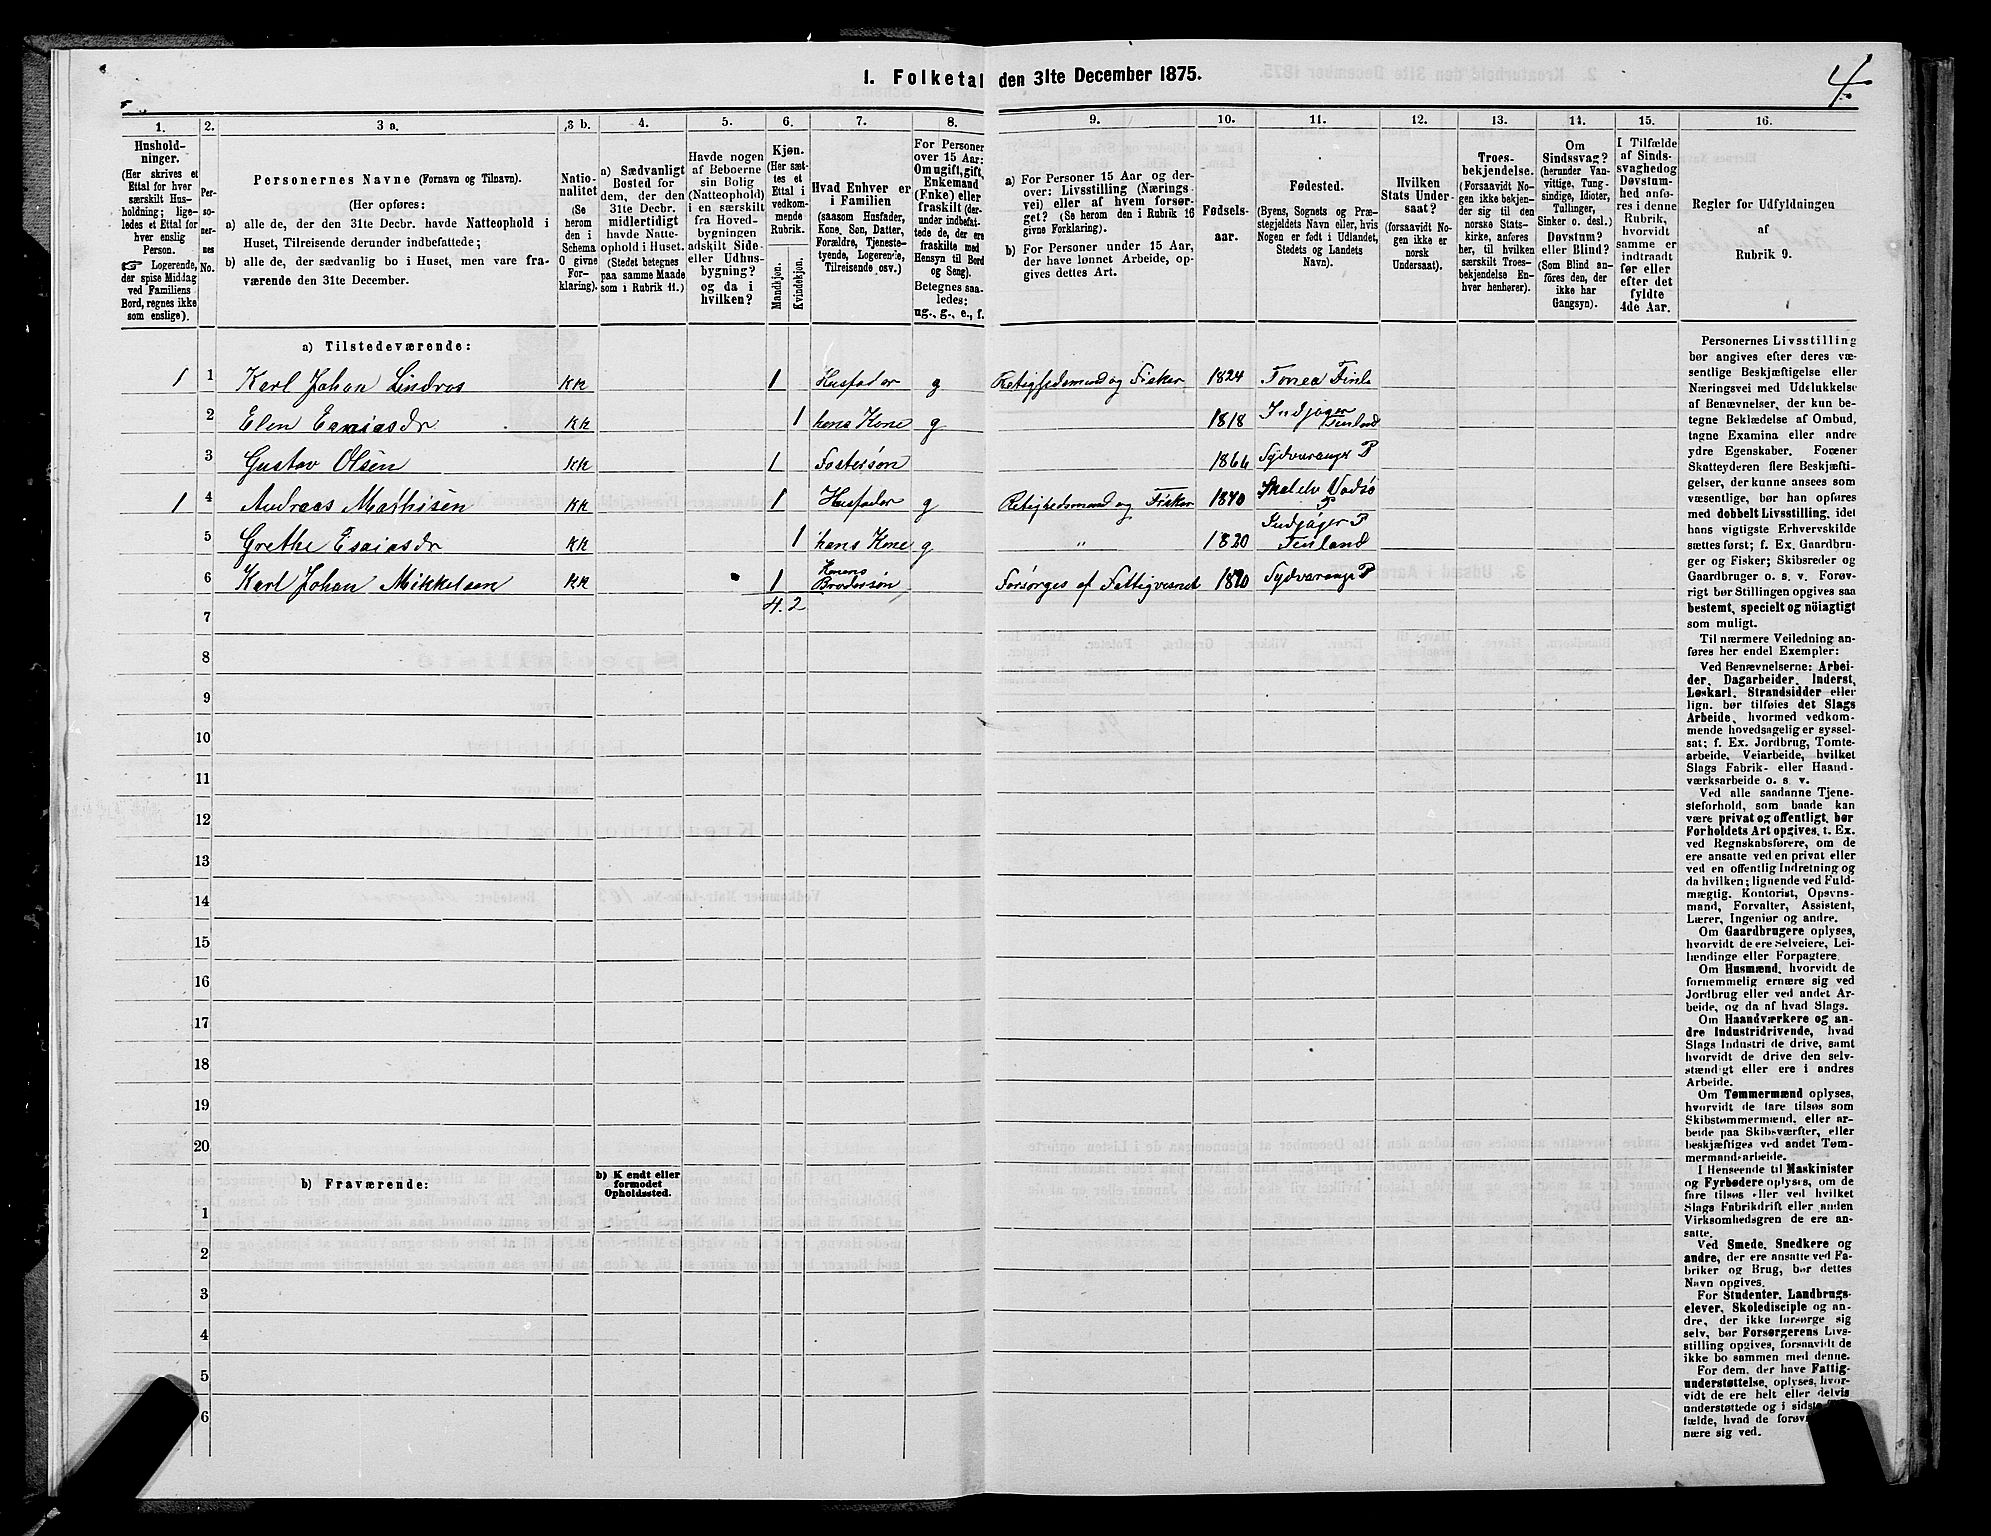 1. Folketal den 31te December 1875.
4.
1. 2. 3 a. 3 b. 4. 5. 6. 7. 8. 9. 10. 11. 12. 13. 14. 15. 16.
Hushold-
ninger.
(Her skrives et
Ettal for hver
særskilt Hus-
holdning; lige-
ledes et Ettal for
hver enslig
Person.
☞ Logerende,
der spise Middag
ved Familiens
Bord, regnes ikke
som enslige).
Per-
so-
ner-
nes
No.
Personernes Navne (Fornavn og Tilnavn).
(Her opføres:
a) alle de, der den 31te Decbr. havde Natteophold i
Huset, Tilreisende derunder indbefattede;
b) alle de, der sædvanlig bo i Huset, men vare fra-
værende den 31te December.
Natio-
nalitet
(Se
herom
den i
Schema
O givne
For-
klaring).
a) Sædvanligt
Bosted for
dem, der den
31te Decbr.
midlertidigt
havde Natte-
ophold i Huset.
(Stedet betegnes
paa samme Maade
som i Rubrik 11.)
Havde nogen
af Beboerne
sin Bolig
(Natteophold)
i en særskilt
fra Hoved-
bygningen
adskilt Side-
eller Udhus-
bygning?
og da i
hvilken?
Kjøn.
(Her sæt-
tes et
Ettal i
vedkom-
mende
Rubrik.
Mandkjøn.
Kvindekjøn.
Hvad Enhver er
i Familien
(saasom Husfader,
Kone, Søn, Datter,
Forældre, Tjeneste-
tyende, Logerende,
Tilreisende osv.)
For Personer
over 15 Aar:
Om ugift, gift,
Enkemand
(Enke) eller
fraskilt (der-
under indbefat-
tede de, der ere
fraskilte med
Hensyn til Bord
og Seng).
Betegnes saa-
ledes:
ug., g., e., f.
a) For Personer 15 Aar og der-
over: Livsstilling (Nærings-
vei) eller af hvem forsør-
get? (Se herom den i Rubrik 16
givne Forklaring).
b) For Personer under 15 Aar,
der have lønnet Arbeide, op-
gives dettes Art.
Fødsels-
aar.
Fødested.
(Byens, Sognets og Præ-
stegjeldets Navn eller, hvis
Nogen er født i Udlandet,
Stedets og Landets
Navn).
Hvilken
Stats Under-
saat?
(forsaavidt No-
gen ikke er
norsk
Undersaat).
Troes-
bekjendelse.
(Forsaavidt No-
gen ikke bekjen-
der sig til den
norske Stats-
kirke, anføres
her, til hvilken
særskilt Troes-
bekjendelse En-
hver henhører).
Om
Sindssvag?
(herunder Van-
vittige, Tung-
sindige, Idioter,
Tullinger,
Sinker o. desl.)
Døvstum?
eller Blind?
(Som Blind an-
føres den, der
ikke har
Gangsyn).
I Tilfælde
af Sinds-
svaghed og
Døvstum-
hed anfø-
res i denne
Rubrik,
hvorvidt
samme er
indtraadt
før eller
efter det
fyldte
4de Aar.
Regler for Udfyldningen
af
Rubrik 9.
a) Tilstedeværende:
1 1 Karl Johan Lindros KK 1 Husfader g Retighedsmand og Fisker 1824 Tonea Finl.
2 Elen Esaiasdr KK 1 hans Kone g 1818 Indjager Finland
3 Gustav Olsen KK 1 Fostersøn 1866 Sydvaranger P
1 4 Andraas Mathisen KK 1 Husfader g Retighedsmand og Fisker Vadsø P
5 Grethe Esaiasdr KK 1 hans Kone g " 1820 Indjager P Finland
6 Karl Johan Mikkelsen KK 1 Konens Brodersøn Forsørges af Fattigvesnet Sydvarange P
4. 2
7
8
9
10
11
12
13
14
15
16
17
18
19
20
b) Fraværende:
b) Kjendt eller
formodet
Opholdssted.
1
2
3
4
5
6
Personernes Livsstilling
bør angives efter deres væ-
sentlige Beskjæftigelse eller
Næringsvei med Udelukkelse
af Benævnelser, der kun be-
tegne Beklædelse af Ombud,
tagne Examina eller andre
ydre Egenskaber. Forener
Skatteyderen flere Beskjæfti-
gelser, der kunne ansees som
væsentlige, bør han opføres
med dobbelt Livsstilling, idet
hans vigtigste Erhvervskilde
sættes først; f. Ex. Gaardbru-
ger og Fisker; Skibsreder og
Gaardbruger o. s. v. Forøv-
rigt bør Stillingen opgives saa
bestemt, specielt og nöiagtigt
som muligt.
Til nærmere Veiledning an-
føres her endel Exempler:
Ved Benævnelserne: Arbei-
der, Dagarbeider, Inderst,
Løskarl, Strandsidder eller
lign. bør tilføies det Slags
Arbeide, hvormed vedkom-
mende hovedsagelig er syssel-
sat; f. Ex. Jordbrug, Tomte-
arbeide, Veiarbeide, hvilket
Slags Fabrik- eller Haand-
værksarbeide o. s. v.
Ved alle saadanne Tjene-
steforhold, som baade kan
være privat og offentligt, bør
Forholdets Art opgives, t. Ex.
ved Regnskabsførere, om de
ere ansatte ved en privat eller
ved en offentlig Indretning og
da hvilken; lignende ved Fuld-
mægtig, Kontorist, Opsyns-
mand, Forvalter, Assistent,
Lærer, Ingeniør og andre.
Om Gaardbrugere oplyses,
hvorvidt de ere Selveiere, Lei-
lændinge eller Forpagtere.
Om Husmænd, hvorvidt de
fornemmelig ernære sig ved
Jordbrug eller ved andet Ar-
beide, og da af hvad Slags.
Om Haandværkere og an-
dre Industridrivende, hvad
Slags Industri de drive, samt
hvorvidt de drive den selv-
stændigt eller ere i andres
Arbeide.
Om Tømmermænd oplyses,
hvorvidt de fare tilsøs som
Skibstømmermænd, eller ar-
beide paa Skibsværfter, eller
beskjæftiges ved andet Tøm-
mermandsarbeide.
I Henseende til Maskinister
og Fyrbødere oplyses, om de
fare tilsøs eller ved hvilket
Slags Fabrikdrift eller anden
Virksomhedsgren de ere an-
satte.
Ved Smede, Snedkere og
andre, der ere ansatte ved Fa-
briker og Brug, bør dettes
Navn opgives.
For Studenter, Landbrugs-
elever, Skoledisciple og an-
dre, der ikke forsørge sig
selv, bør Forsørgerens Livs-
stilling opgives, forsaavidt de
ikke bo sammen med denne.
For dem, der have Fattig-
understøttelse, oplyses, hvor-
vidt de ere helt eller delvis
understøttede og i sidste
fælde, hvad de
nære sig ved.